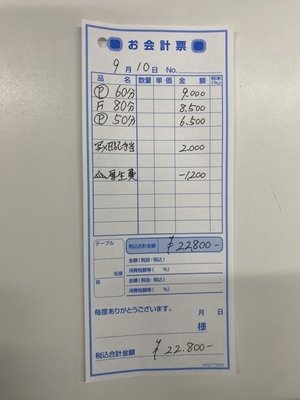 お会計票
9月10日 No.
品名 数量 単価 金額 税率(%)
Ⓟ 60分 9.000
F 80分 8.500
Ⓟ 50分 6.500
写メ日記手当 2.000
厚生費 -1,200
テーブル 名様 係
税込合計金額 ¥22,800-
金額(税抜・税込)
消費税額等( %)
金額(税抜・税込)
消費税額等( %)
毎度ありがとうございます。 月 日
様
税込合計金額 ¥22.800-